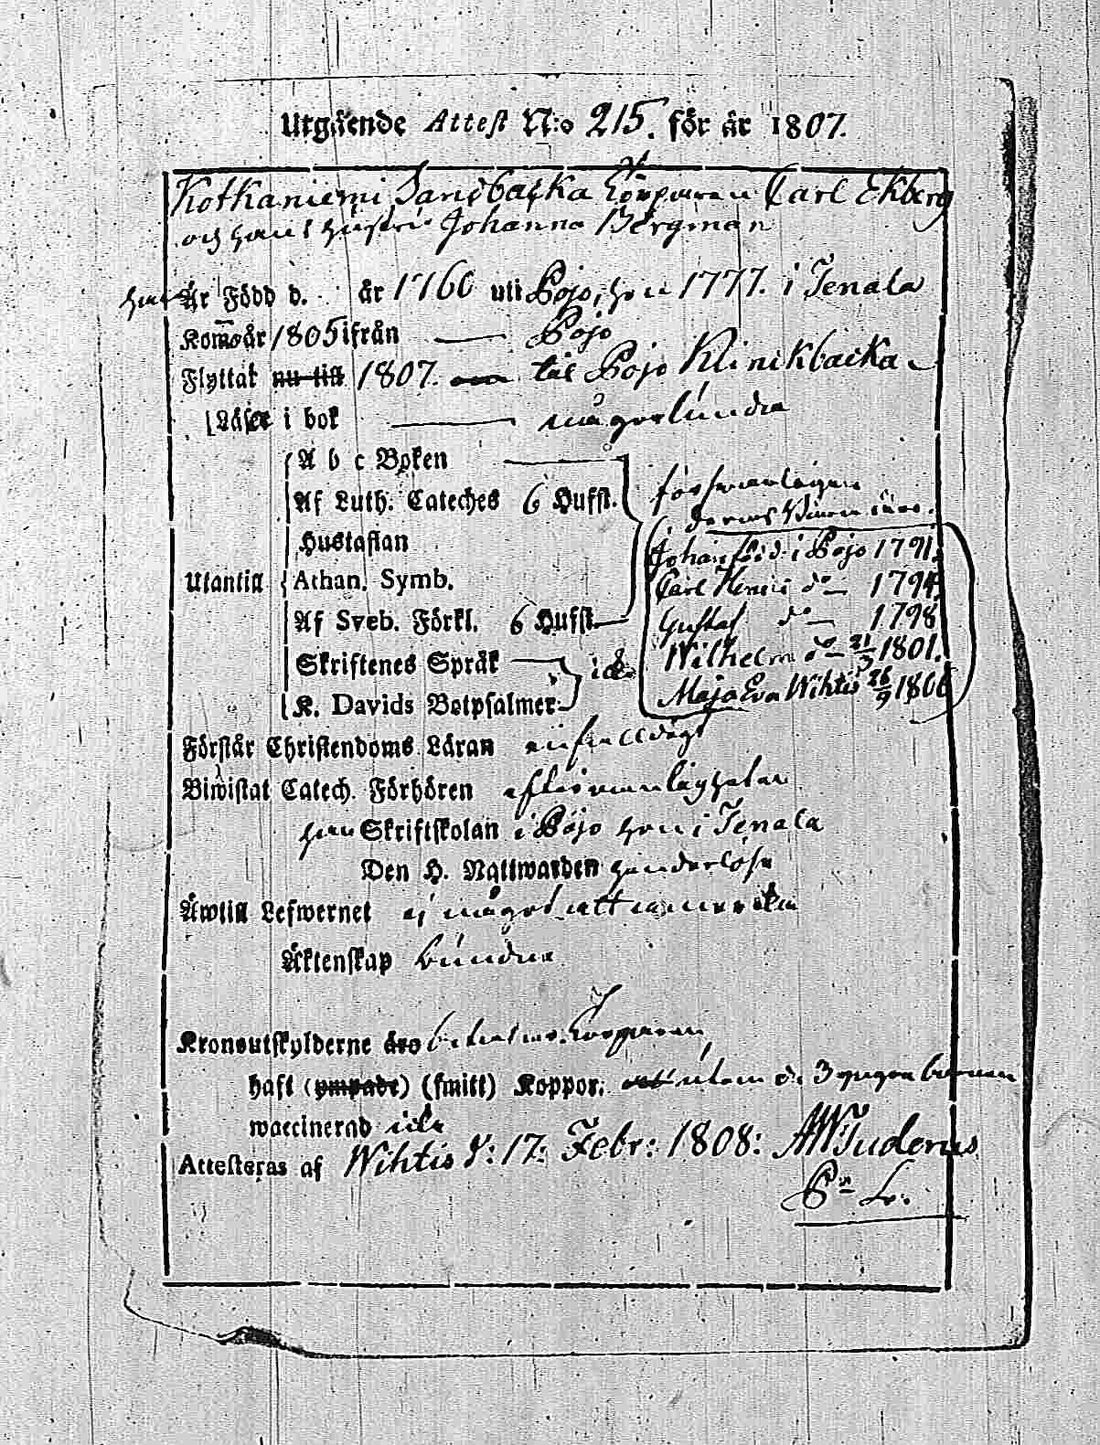 Utgående Attest N:o 215. för år 1807.
Kotkaniemi Carl Ekberg
och hans hustru Johanna Bergman
han Är Född d. år 1760 uti Pojo, hon 1777. i Tenala
Kom̄o år 1805 ifrån — Pojo
Flyttat nu till 1807. till Pojo Klinkbacka
Läser i bok — någorlunda
A b c Boken
Af Luth. Cateches 6 Hufst. försvarligen
deras Barn äro.
Hustaflan
Johan född i Pojo 1791.
Utantill Athan. Symb.
Carl Henric do — 1794.
Af Sveb. Förkl. 6 Hufst.
Gustaf do — 1798
Skriftenes Språk — icke
Wilhelm do — 21/3 1801.
K. Davids Botpsalmer
Maja Eva Wihtis 26/9 1806
Förstår Christendoms Läran enfalldigt
Biwistat Catech. Förhören
han Skriftskolan i Pojo hon i Tenala
Den H. Nattwarden hinderlöse
Äwtill Lefwernet ej något att anmärka
Äktenskap bundne
Kronoutskylderne äro betalte.
haft (ympade) (smitt) Koppor, utom de 3 yngre barnen
waccinerad icke
Attesteras af Wihtis d: 17: Febr: 1808: AWTuderus